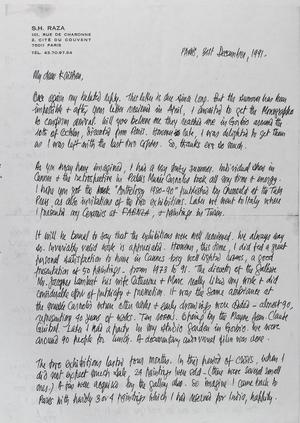 S.H. RAZA
101, RUE DE CHARONNE
2, CITÉ DU COUVENT
75011 PARIS
TEL: 43.70.97.84
Paris, 31st December, 1991.
My dear Krishna,
Once again my belated reply. This letter is due since long. But the summer has been
impossible & after your letter received in April, I awaited to get the Monographs
to confirm arrival. Will you believe me they reached me in Gorbio around the
of October, from Paris. However late, I was delighted to get them
as I was left with the last two copies. So, thanks ever so much.
As you may have imagined, I had a very busy summer. Individual show in
Cannes & the Retrospective in Palais Carnolès took all my time & energy.
I hope you got the book "Anthology 1980-90" published by Chemould at the Taj
, also invitations of the two exhibitions. Later we went to Italy where
I presented my Ceramics at & paintings in Turin.
It will be banal to say that the exhibitions were well received. We always say
so. Invariably valid work is appreciated. However, this time, I did feel a great
personal satisfaction to have in Cannes very well lighted rooms, a good
presentation of 50 paintings - from 1973 to 91. The director of the Galerie
Mr. Jacques Lambert his wife Catherine & Marc really liked my work & did
considerable effort of publicity & promotion. It was the same ambience at
the Musée Carnolès where often older & early chronology were added - almost 90,
representing 40 years of work. Tam . Opening by the Mayor Jean Claude
Guibal. Later I had a party in my studio garden in Gorbio. We were
around 90 people for lunch. A documentary film was done.
The two exhibitions lasted four months. In this period of CRISIS, when I
did not expect much sale, 24 paintings were sold. (There were several small
ones.) A few were acquired by the gallery also. So imagine I came back to
Paris with hardly 3 or 4 paintings which I had reserved for India, happily.